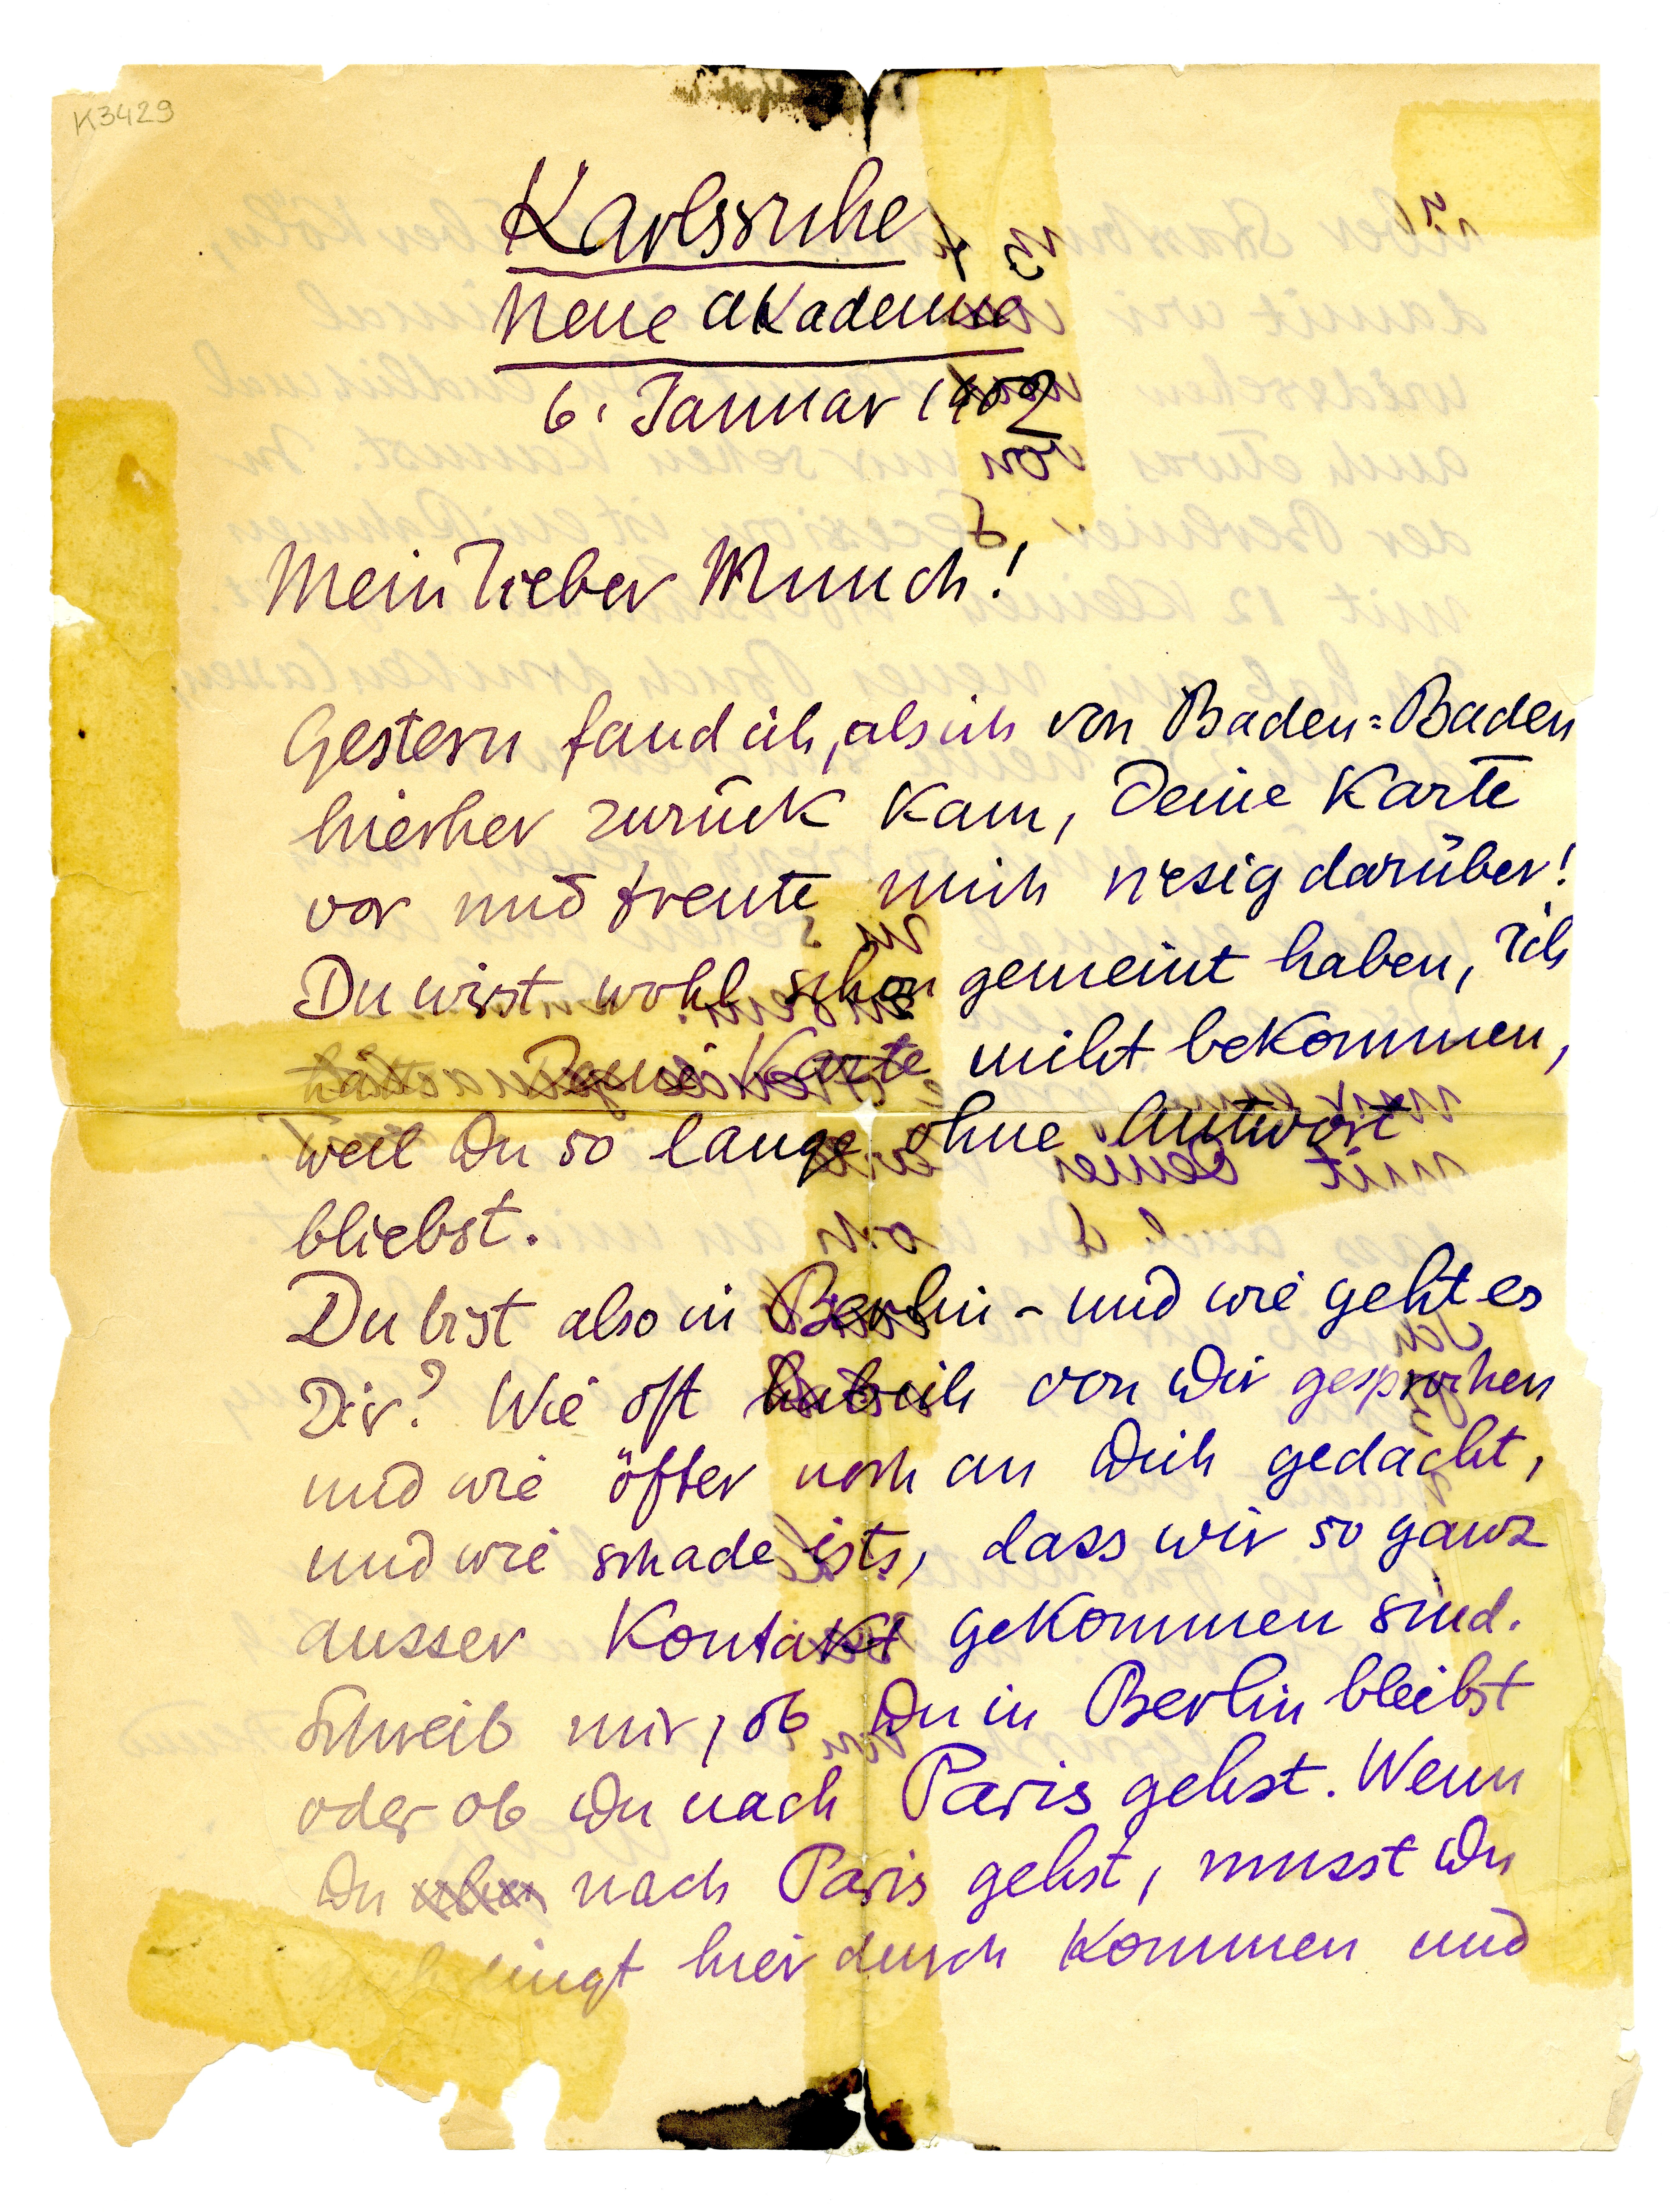 K3429
Karlsruhe
Neue Akademie
6. Januar 1902
Mein lieber Munch!
Gestern fand ich, als ich von Baden=Baden
hierher zurück kam, Deine Karte
vor und freute mich riesig darüber!
Du wirst wohl schon gemeint haben, ich
hätte Deine Karte nicht bekommen,
weil Du so lange ohne Antwort
bliebst.
Du bist also in Berlin – und wie geht es
Dir? Wie oft hab ich von Dir gesprochen
und wie öfter noch an Dich gedacht,
und wie schade ists, dass wir so ganz
ausser Kontakt gekommen sind.
Schreib mir, ob Du in Berlin bleibst
oder ob Du nach Paris gehst. Wenn
Du nach Paris gehst, musst Du
dingt hier durch kommen und